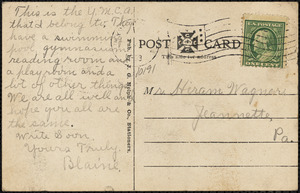 This is the Y.M.C.A.
that'd belong to. They
have a swimming
pool gymnasium
reading room and
a playroom and a
lot of other things.
We are all well and
hope you all are
the same.
Write Soon.
Yours Truly.
Blaine.
POST CARD
ONE CENT
Mr. Hiram Wagner
Jeannette,
Pa.